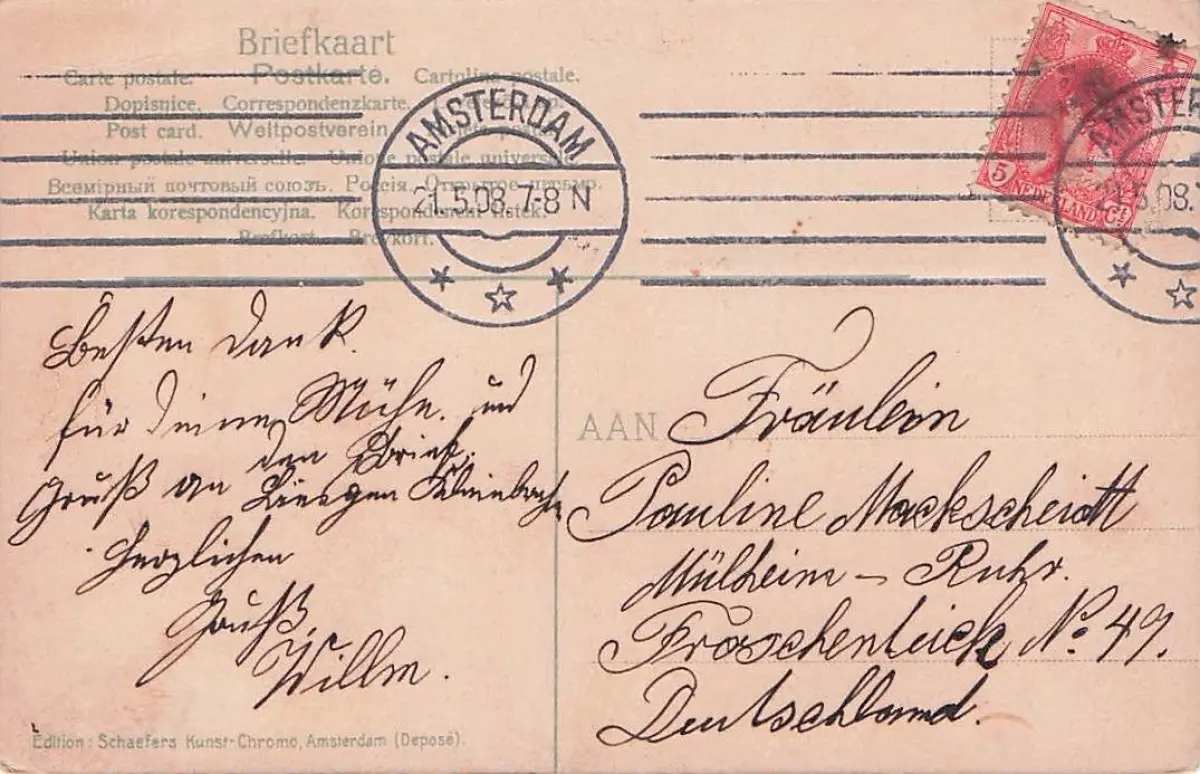 Briefkaart
Carte postale. Postkarte. Cartolina postale.
Dopisnice. Correspondenzkarte.
Post card. Weltpostverein
Union postale universelle. Unione postale universale
Всемірный почтовый союзъ. Россія. Открытое письмо.
Karta korespondencyjna. Korespondencni listek.
Brefkort. Brevkort.
AMSTERDAM
21.5.08.7-8 N
AMSTER
21.5.08.
5
NEDERLAND
Ct
Besten Dank
für deine Mühe. und
den Brief.
Gruß an Liesgen Kleinbach
herzlichen
Gruß,
Willm.
AAN
Fräulein
Pauline Mackscheidt
Mülheim - Ruhr.
Froschenteich No. 49.
Deutschland.
Edition: Schaefers Kunst-Chromo, Amsterdam (Deposé).